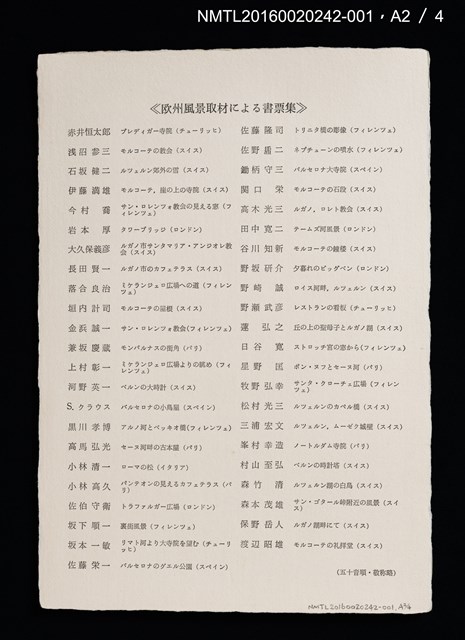 NMTL20160020242-001，A2 / 4
≪欧州風景取材による書票集≫
赤井恒太郎　プレディガー寺院（チューリッヒ）
浅沼恭三　モルコーテの教会（スイス）
石坂健二　ルツェルン郊外の雪（スイス）
伊藤満雄　モルコーテ，崖の上の寺院（スイス）
今村喬　サン・ロレンツォ教会の見える窓（フィレンツェ）
岩本厚　タワーブリッジ（ロンドン）
大久保義彦　ルガノ市サンタマリア・アンジオレ教会（スイス）
長田賢一　ルガノ市のカフェテラス（スイス）
落合良治　ミケランジェロ広場への道（フィレンツェ）
垣内計司　モルコーテの屋根（スイス）
金浜誠一　サン・ロレンツォ教会（フィレンツェ）
兼坂慶蔵　モンパルナスの街角（パリ）
上村彰一　ミケランジェロ広場よりの眺め（フィレンツェ）
河野英一　ベルンの大時計（スイス）
S. クラウス　バルセロナの小鳥屋（スペイン）
黒川孝博　アルノ河とベッキオ橋（フィレンツェ）
高馬弘光　セーヌ河畔の古本屋（パリ）
小林清一　ローマの松（イタリア）
小林高久　パンテオンの見えるカフェテラス（パリ）
佐伯守衛　トラファルガー広場（ロンドン）
坂下順一　裏街風景（フィレンツェ）
坂本一敏　リマト河より大寺院を望む（チューリッヒ）
佐藤栄一　バルセロナのグエル公園（スペイン）
佐藤隆司　トリニタ橋の彫像（フィレンツェ）
佐野盾二　ネプチューンの噴水（フィレンツェ）
鋤柄守三　バルセロナ大寺院（スペイン）
関口栄　モルコーテの石段（スイス）
高木光三　ルガノ，ロレト教会（スイス）
田中寛二　テームズ河風景（ロンドン）
谷川知新　モルコーテの鐘楼（スイス）
野坂研介　夕暮れのビッグベン（ロンドン）
野崎誠　ロイス河畔，ルツェルン（スイス）
野瀬武彦　レストランの看板（チューリッヒ）
蓮弘之　丘の上の聖母子とルガノ湖（スイス）
日谷寛　ストロッチ宮の窓から（フィレンツェ）
星野匡　ポン・ヌフとセーヌ河（パリ）
牧野弘幸　サンタ・クローチェ広場（フィレンツェ）
松村光三　ルツェルンのカペル橋（スイス）
三浦宏文　ルツェルン，ムーゼク城壁（スイス）
峯村幸造　ノートルダム寺院（パリ）
村山至弘　ベルンの時計塔（スイス）
森竹清　ルツェルン湖の白鳥（スイス）
森本茂雄　サン・ゴタール峠附近の風景（スイス）
保野岳人　ルガノ湖畔にて（スイス）
渡辺昭雄　モルコーテの礼拝堂（スイス）
（五十音順・敬称略）
NMTL20160020242-001, A2/4